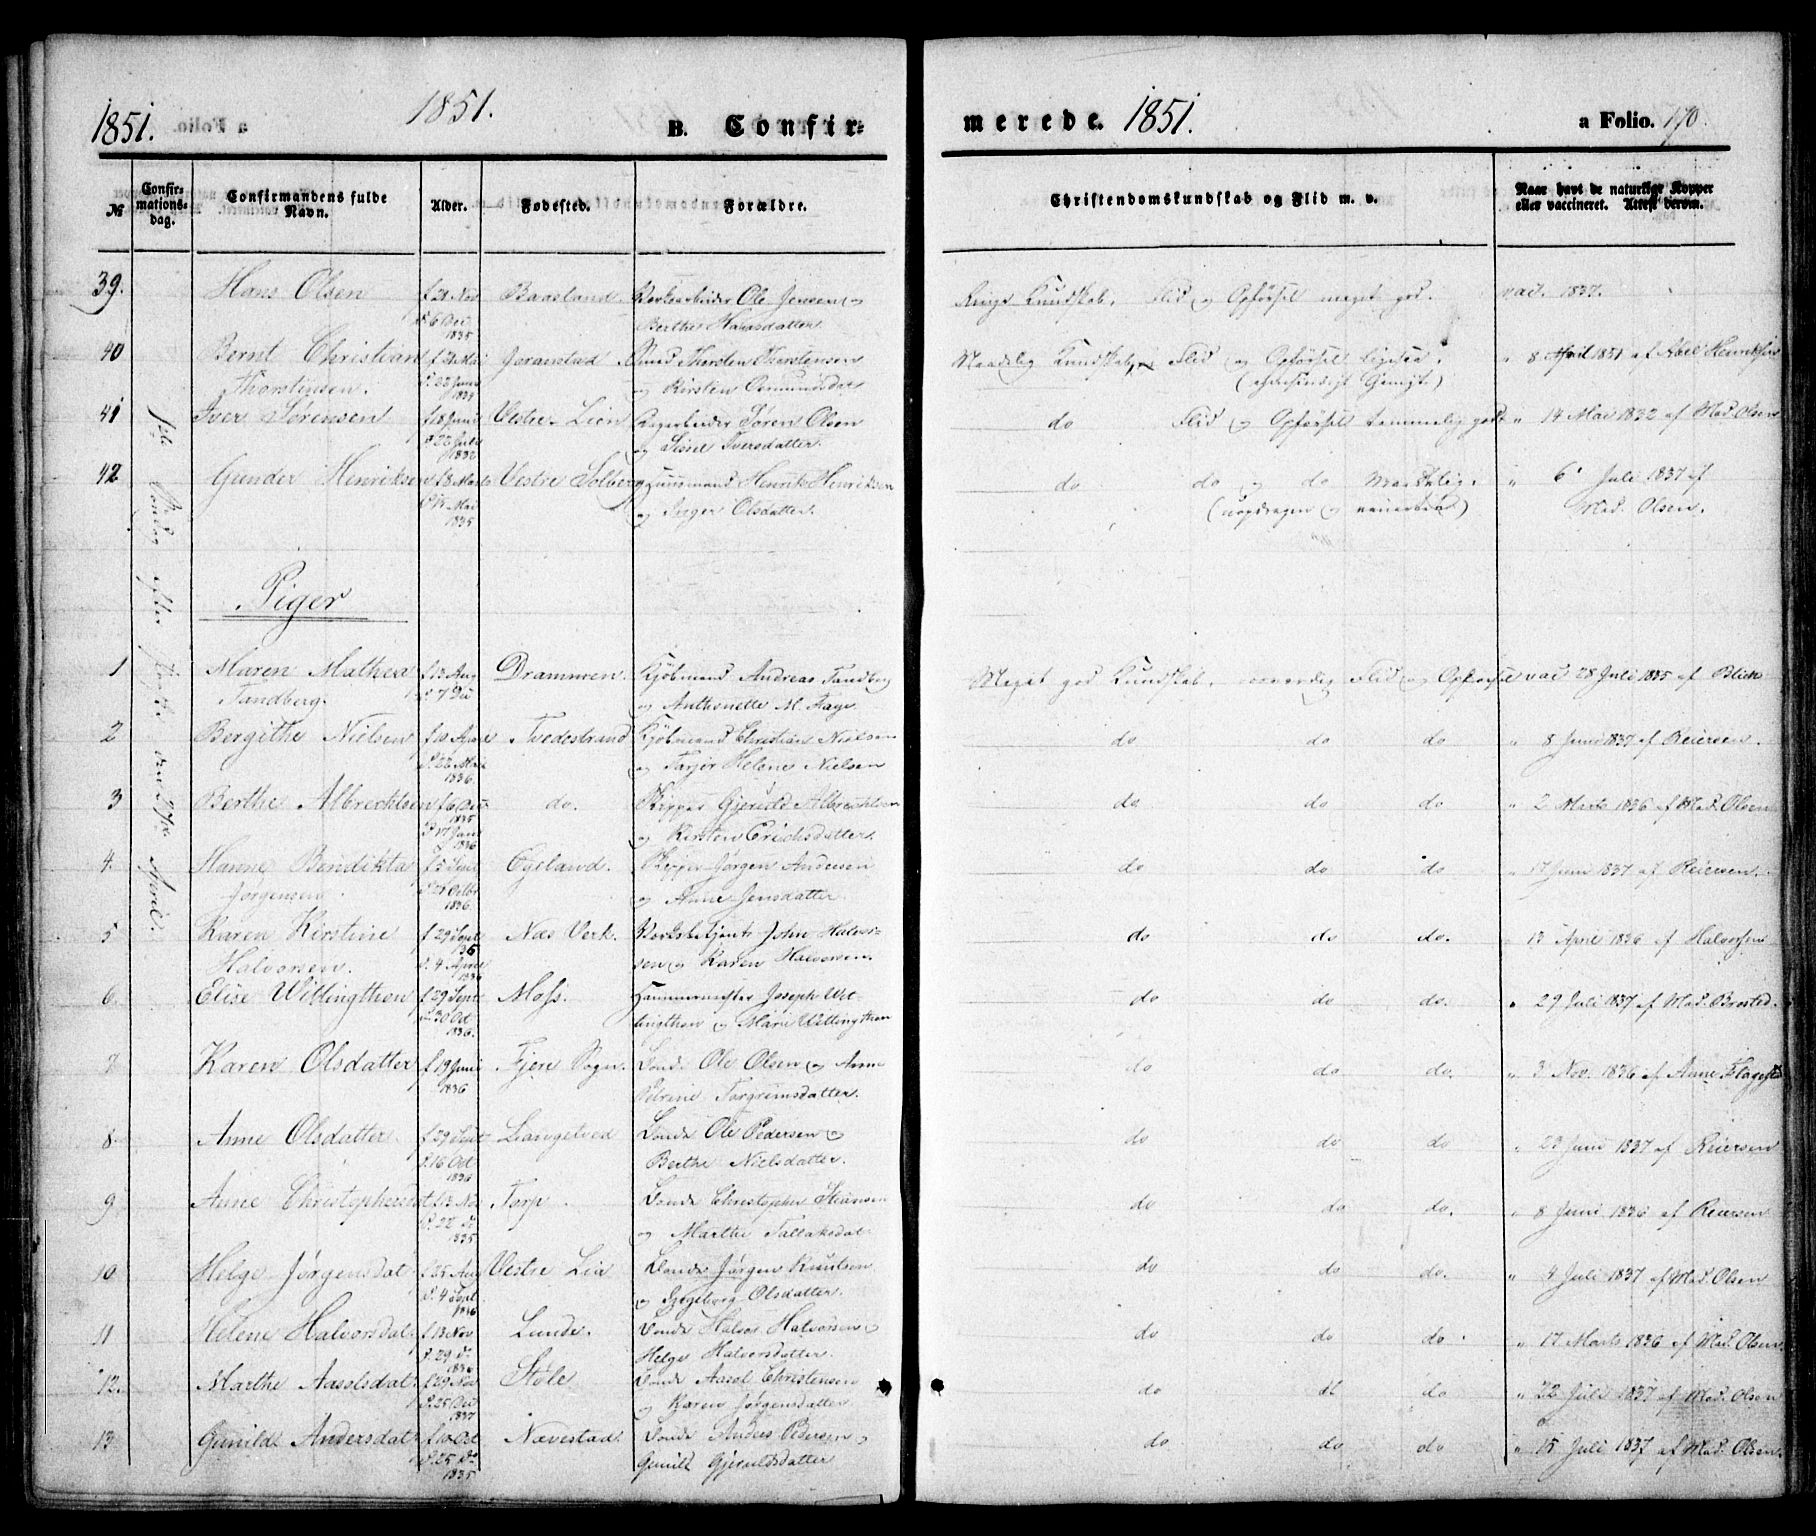 1851.
1851.
B. Confir=
merede. 1851.
a Folio. 170.
№
Confir=
mations=
dag.
Confirmandens fulde
Navn.
Alder.
Fødested.
Forældre.
Christendomskundskab og Flid m. v.
Naar havt de naturlige Kopper
eller vaccineret. Attest derom.
1ste Søndag efter Paaske den 27de April.
39. Hans Olsen f 21 Nov Baasland. Ole Jensen og Kundskab. Flid og Opførsel meget god. vac. 1837.
d 6 Dec Berthe Hansdatter
1835
40 Bernt Christian Joranstad Smed Thorsten Thorstensen Maadelig Kundskab, Flid og Opførsel ligesaa. " 8 April 1851 af Abel Henriksen
Thorstensen. og Kirsten Osmundsdat
41 Iver Sørensen f 18 Juni Vestre Lien Søren Olsen do Flid og Opførsel temmelig godt " 14 Mai 1832 af Mad. Olsen
d 22 Juli og Sisne Iversdatter.
1832
42 Gunder Henriksen f 8 Marts Vestre Solberg Huusmand Henrik Henriksen do do og do Maadelig. " 6 Juli 1837 af
d 14 Mai og Inger Olsdatter. Mad. Olsen.
1835
Piger
1 Maren Mathea f 13 Aug Drammen. Kjøbmand Andreas Tandberg Meget god Kundskab, Flid og Opførsel vac 28 Juli 1835 af Blich
Tandberg. d 7 De og Anthonette M. Faye
2 Bergithe Nielsen Tvedestrand Kjøbmand Christian Nielsen do do do " 8 Juni 1837 af Reiersen.
1836. og Tarjer Helene Nielsen
3 Berthe Albrechtsen f 6 Dec do. Skipper Gjeruld Albrechtsen do do do " 2 Marts 1836 af Mad. Olsen
1835
d 17 Jan og Kirsten Erichsdatter.
1836
4. Hanne Bendikta f 5 Sept Egeland. Skipper Jørgen Andersen do do do " 17 Juni 1837 af Reiersen.
Jørgensen. d 21 Octbr og Anne Jensdatter
1836.
5 Karen Kirstine f 29 Sept Næs Verk. Verksbetjent John Halvor- do do do. " 13 April 1836 af Halvorsen
35
Halvorsen. d. 4 April sen og Karen Halvorsen.
1836
6. Elise Wittingthon f 29 Sept Moss. Hammermester Joseph Wit- do do do. " 29 Juli 1837 af Mad. Brosted.
d 30 Oct tingthon og Marie Wittingthon
1836.
7 Karen Olsdatter f 19 Juni Fjere Sogn. Bonde Ole Olsen og Anne do do do. " 3 Nov. 1836 af Anne
1836 Petrine Torgrimsdatter.
8 Anne Olsdatter f 29 Sept Langetved Bonde Ole Pedersen og do do do " 23 Juni 1837 af Reiersen
d. 16 Oct Berthe Nielsdatter.
1836
9 Anne Christophersdt. f 13 Nov Torp. Bonde Christopher Hansen do do do. " 8 Juni 1836 af Reiersen
d. 22 do og Marthe Tallaksdat
1835
10 Helge Jørgensdat f 25 Aug Vestre Lia Bonde Jørgen Knutsen do do do. " 4 Juli 1837 af Mad. Olsen
d. 4 Sept og Ingeborg Olsdatter.
1836
11 Helene Halvorsdat f 13 Nov Lunde. Bonde Halvor Halvorsen og do do do. " 17 Marts 1836 af Mad. Olsen
d. 29 do Helge Halvorsdatter.
12. Marthe Aasolsdat. f 29 Nov Støle Bonde Aasol Christensen do do do " 22 Juli 1837 af Mad. Olsen
d. 25 Dec og Karen Jørgensdatter
13 Gunild Andersdat f 10 Oct Nævestad. Bonde Anders Pedersen og do do do " 15 Juli 1837 af Mad. Olsen
d. 25 do Gunild Gjeruldsdatter
1835